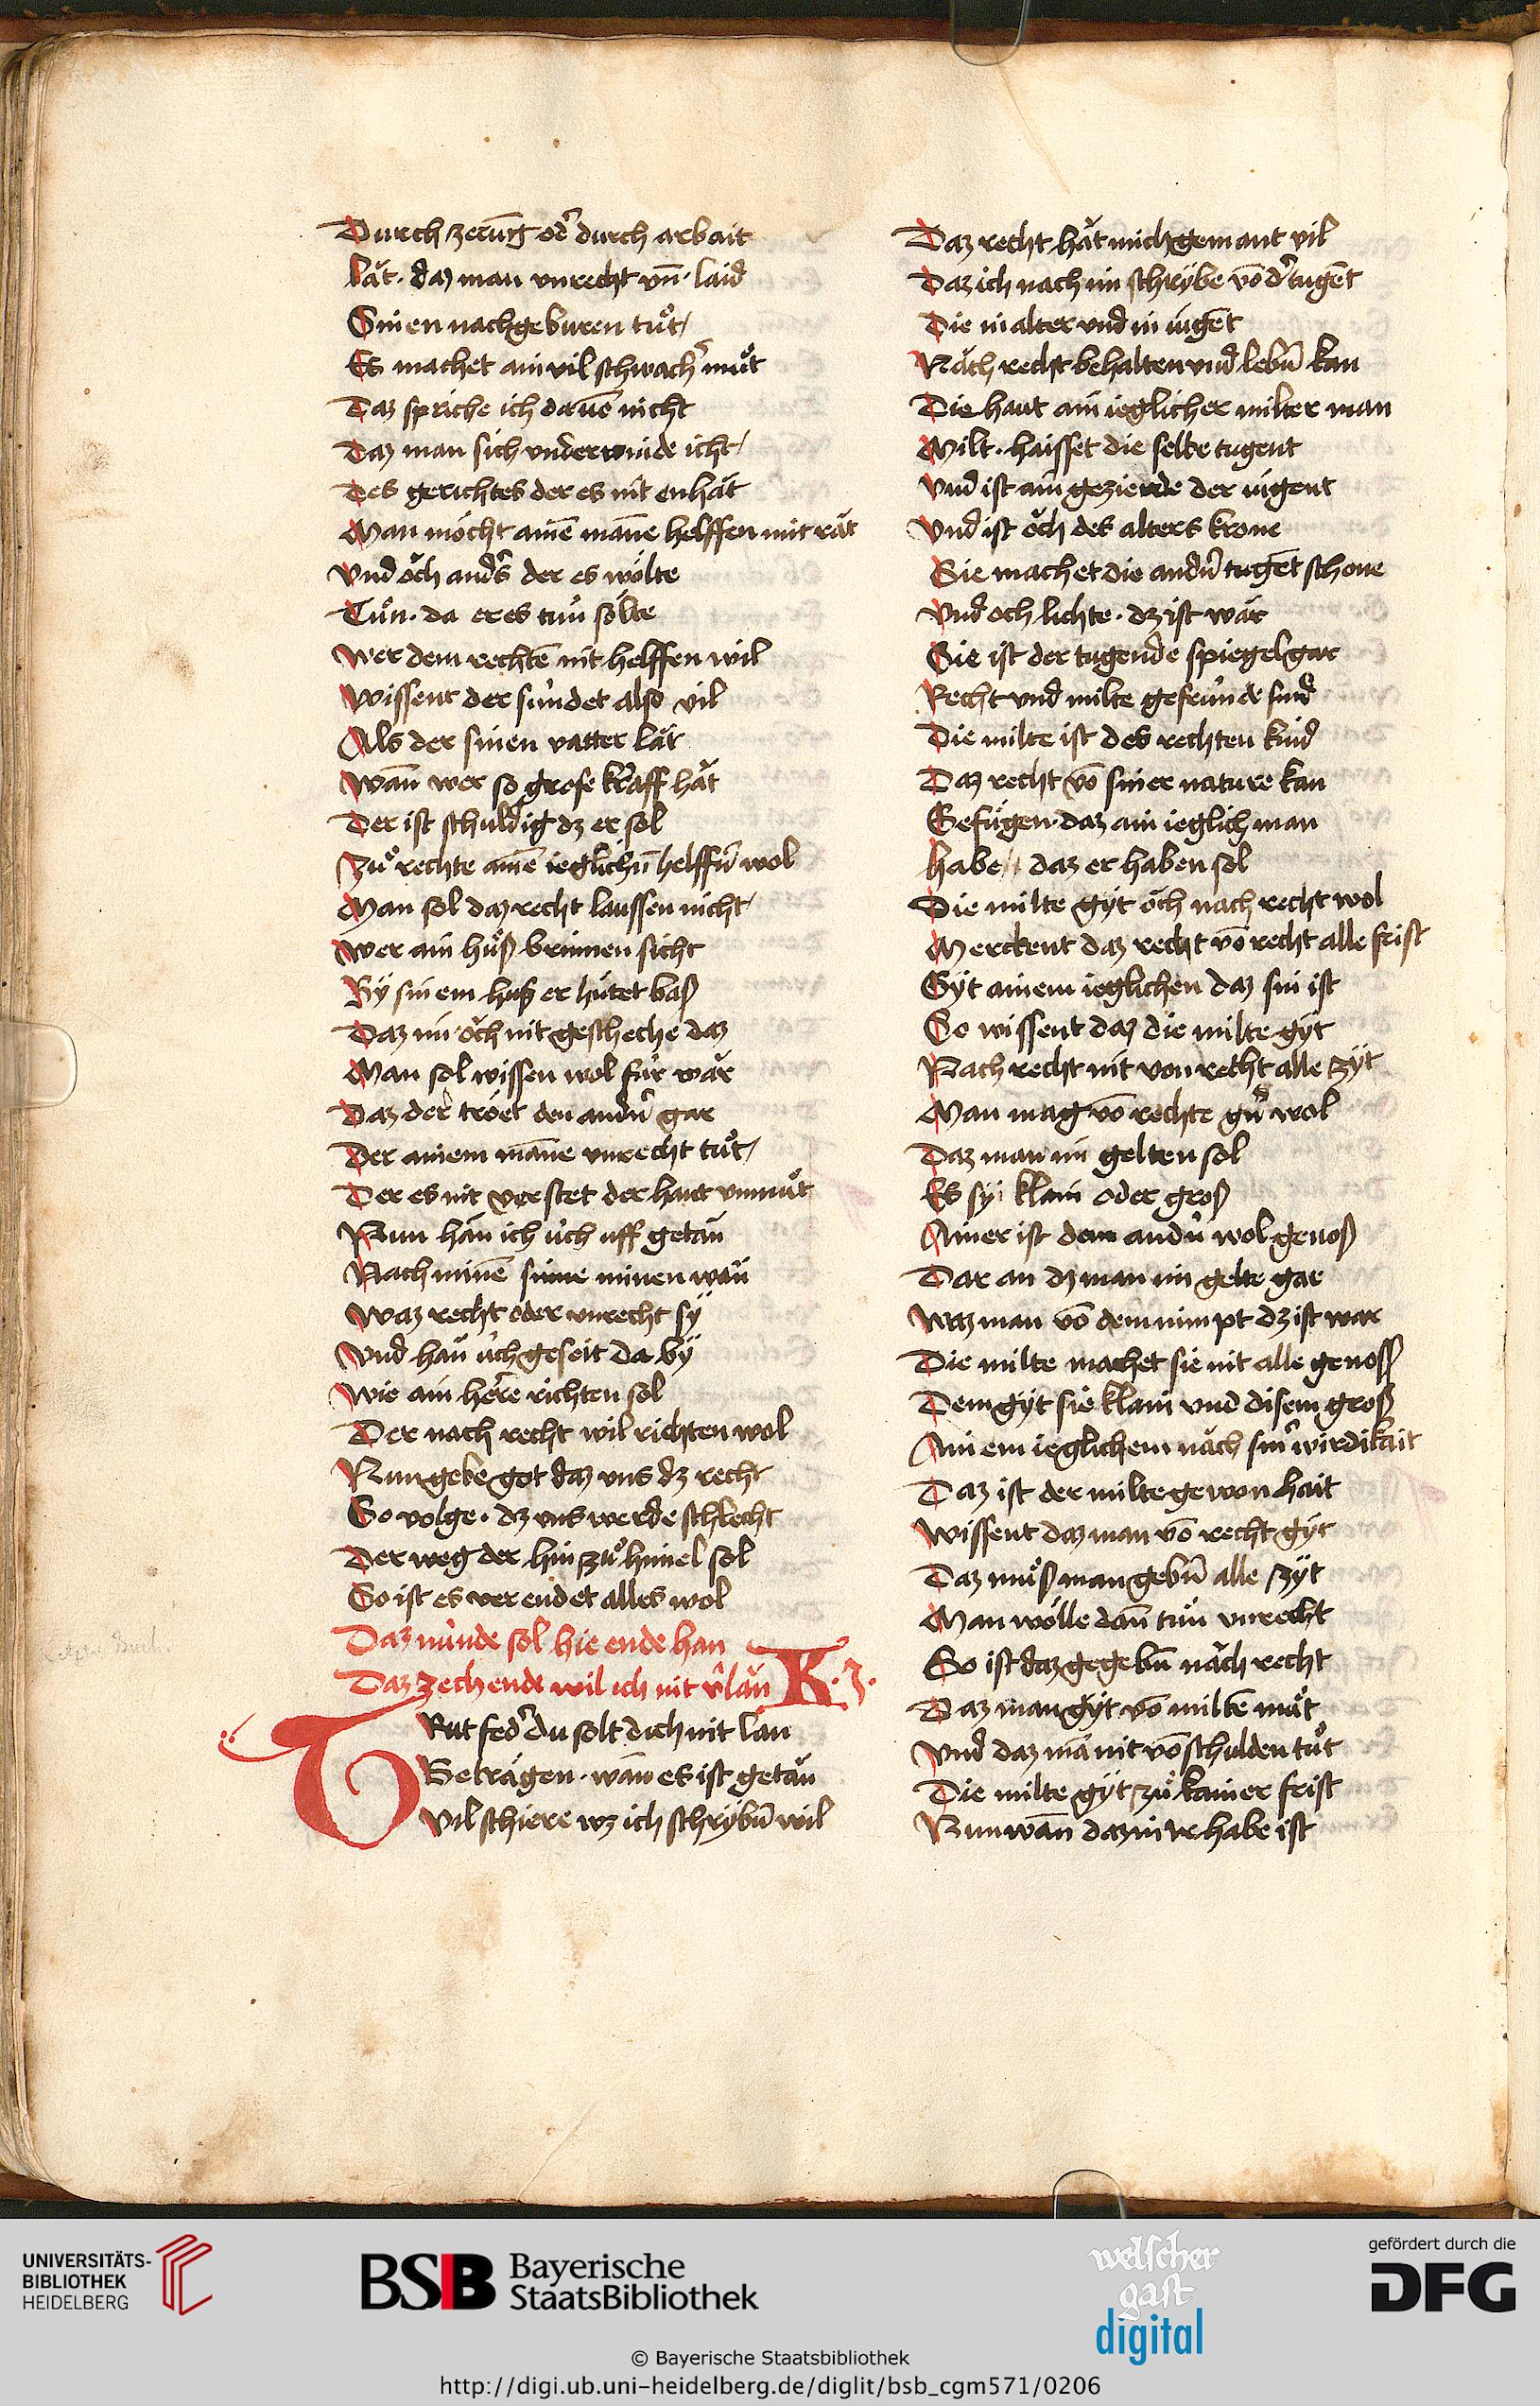 Durch zerūg od̕ durch arbait
lǎt · daz man vnrecht vn̄ · laid
Sinen nachgeburen tůt
Es machet ain vil schwach̕ můt
Daz spriche ich dauō nicht
Daz man sich vnderwinde icht
Des gerichtes der es nit enhǎt
Man mocht ainē manne helffen mit rǎt
Vnd och and̕s der es wölte
Tůn · da er es tůn sölte
Wer dem rechtē nit helffen wil
Wissent der sündet also vil
Als der sinen vatter lǎt
Wann wer so grose kraff hǎt
Der ist schuldig dz er sol
Zů rechte ainē ieglichn̄ helffn̄ wol
Man sol daz recht laussen nicht
Wer ain hůß brinnen sicht
By sinem huß er hütet baß
Daz im och nit gescheche daz
Man sol wissen wol für wǎr
Daz der tröet den andn̄ gar
Der ainem manne vnrecht tůt
Der es nit verstet der haut vnmůt
Nun hǎn ich üch uff getǎn
Nach minē sinne minen wǎn
Waz recht oder vnrecht sÿ
Vnd hǎn üch geseit da bÿ
Wie ain herre richten sol
Der nach recht wil richten wol
Nun gebe got daz vns dz recht
So volge · dz vns werde schlecht
Der weg der hin zů himel sol
So ist es verendet alles wol
Daz nünde sol hie ende han
Daz zechende wil ich nit v̕lǎn K · 3 ·
TRut fed̕ du solt dich nit lan
Betragen · wann es ist getǎn
Vil schiere wz ich schrÿbn̄ wil
Daz recht hǎt mich gemant vil
Daz ich nach im schrÿbe vō d̕ tugēt
Die in alter vnd in iugēt
Nǎch recht behalten vnd lebn̄ kan
Die haut ain ieglicher milter man
Milt · haisset die selbe tugent
Vnd ist ain gezierde der iugent
Vnd ist och des alters krone
Sie machet die andn̄ tugēt schone
Vnd och lichte · dz ist wǎr
Sie ist der tugende spiegel gar
Recht vnd milte gefründe sind
Die milte ist des rechten kind
Daz recht vō siner nature kan
Gefügen daz ain ieglich man
habe daz er haben sol
Die milte gÿt och nach recht wol
Merckent daz recht vō recht alle frist
Gÿt ainem ieglichen daz sin ist
So wissent daz die milte gÿt
Nach recht nit von recht alle zÿt
Man mag vō rechte gn̄ wol
Daz man im gelten sol
Es sÿ klain oder groß
Ainer ist dem andn̄ wol genoß
Dar an dz man im gelte gar
Waz man vō dem nimpt dz ist war
Die milte machet sie nit alle genoss
Dem gÿt sie klain vnd disem groß
Ainem ieglichem nǎch sin̕ wirdikait
Daz ist der milte gewonhait
Wissent daz man vō recht gÿt
Daz můß man gebn̄ alle zÿt
Man wölle dann tůn vnrecht
So ist daz gegebn̄ nǎch recht
Daz man gÿt vō miltē můt
Vnd daz mā nit vō schulden tůt
Die milte gÿt zů kainer frist
Nun wann daz in ir habe ist
UNIVERSITÄTS-
BIBLIOTHEK
HEIDELBERG
BSB Bayerische
StaatsBibliothek
welscher
gast
digital
gefördert durch die
DFG
© Bayerische Staatsbibliothek
http://digi.ub.uni-heidelberg.de/diglit/bsb_cgm571/0206